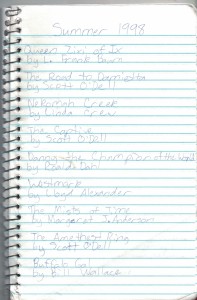 Summer 1998
Queen Zixi of Ix
by L. Frank Baum
The Road to Damietta
by Scott O'Dell
Nekomah Creek
by Linda Crew
The Captive
by Scott O'Dell
Danny the Champion of the World
by Roald Dahl
Westmark
by Lloyd Alexander
The Mists of Time
by Margaret J. Anderson
The Amethyst Ring
by Scott O'Dell
Buffalo Gal
by Bill Wallace